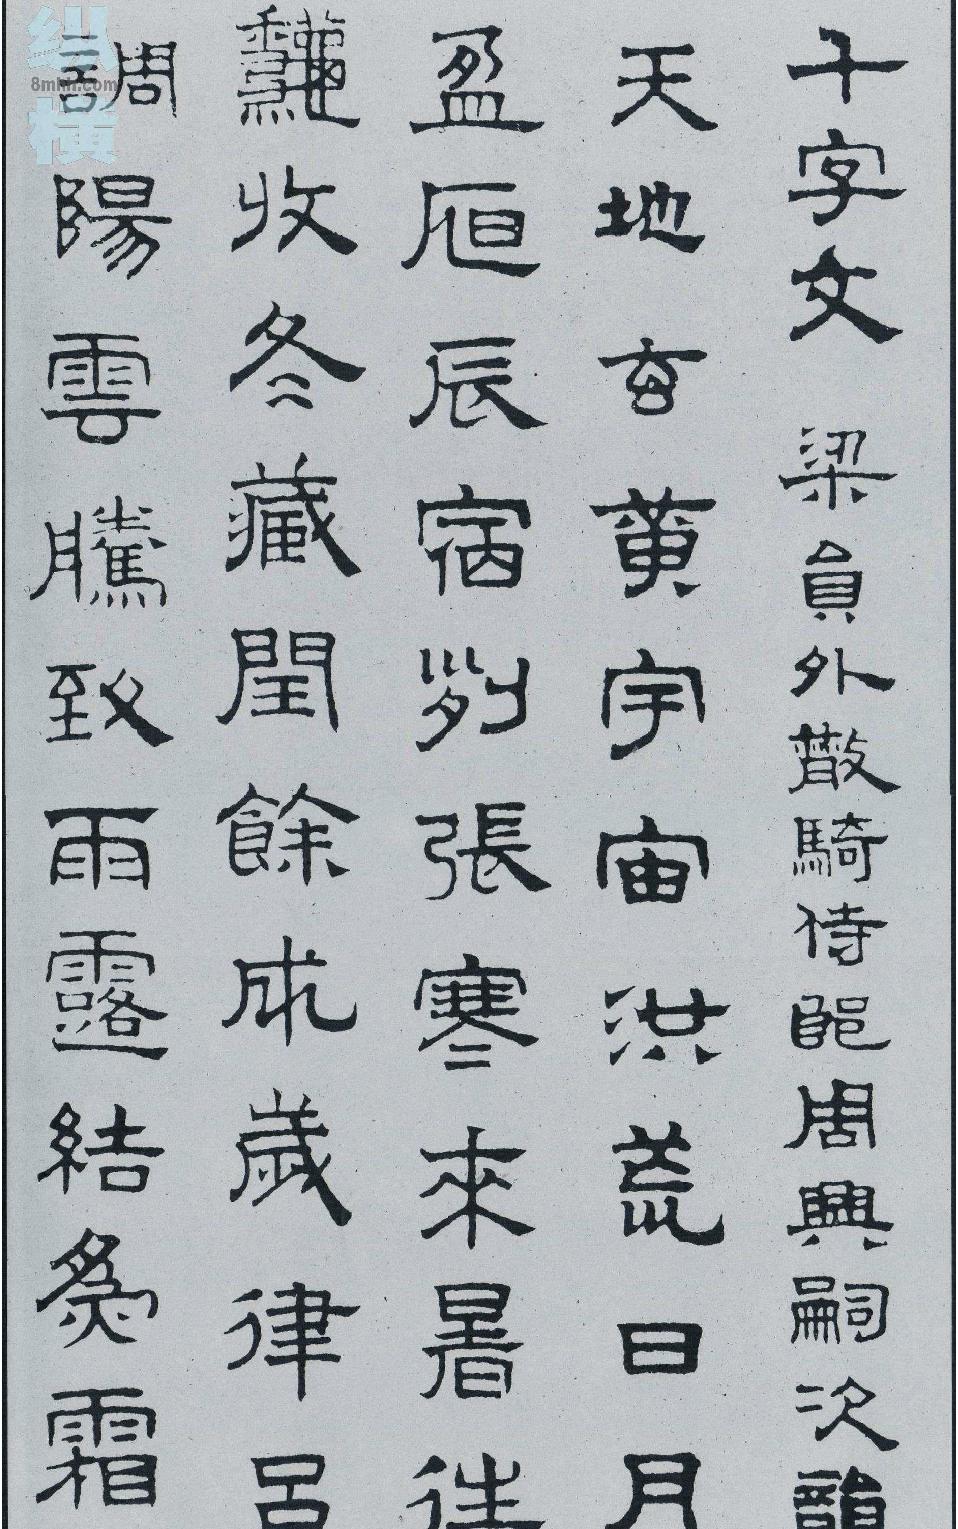 千字文 梁員外散騎侍郎周興嗣次韻
天地玄黄宇宙洪荒日月
盈昃辰宿列張寒來暑往
龝收冬藏閏餘成歲律吕
調陽雲騰致雨露結為霜
纵横
8mhh.com